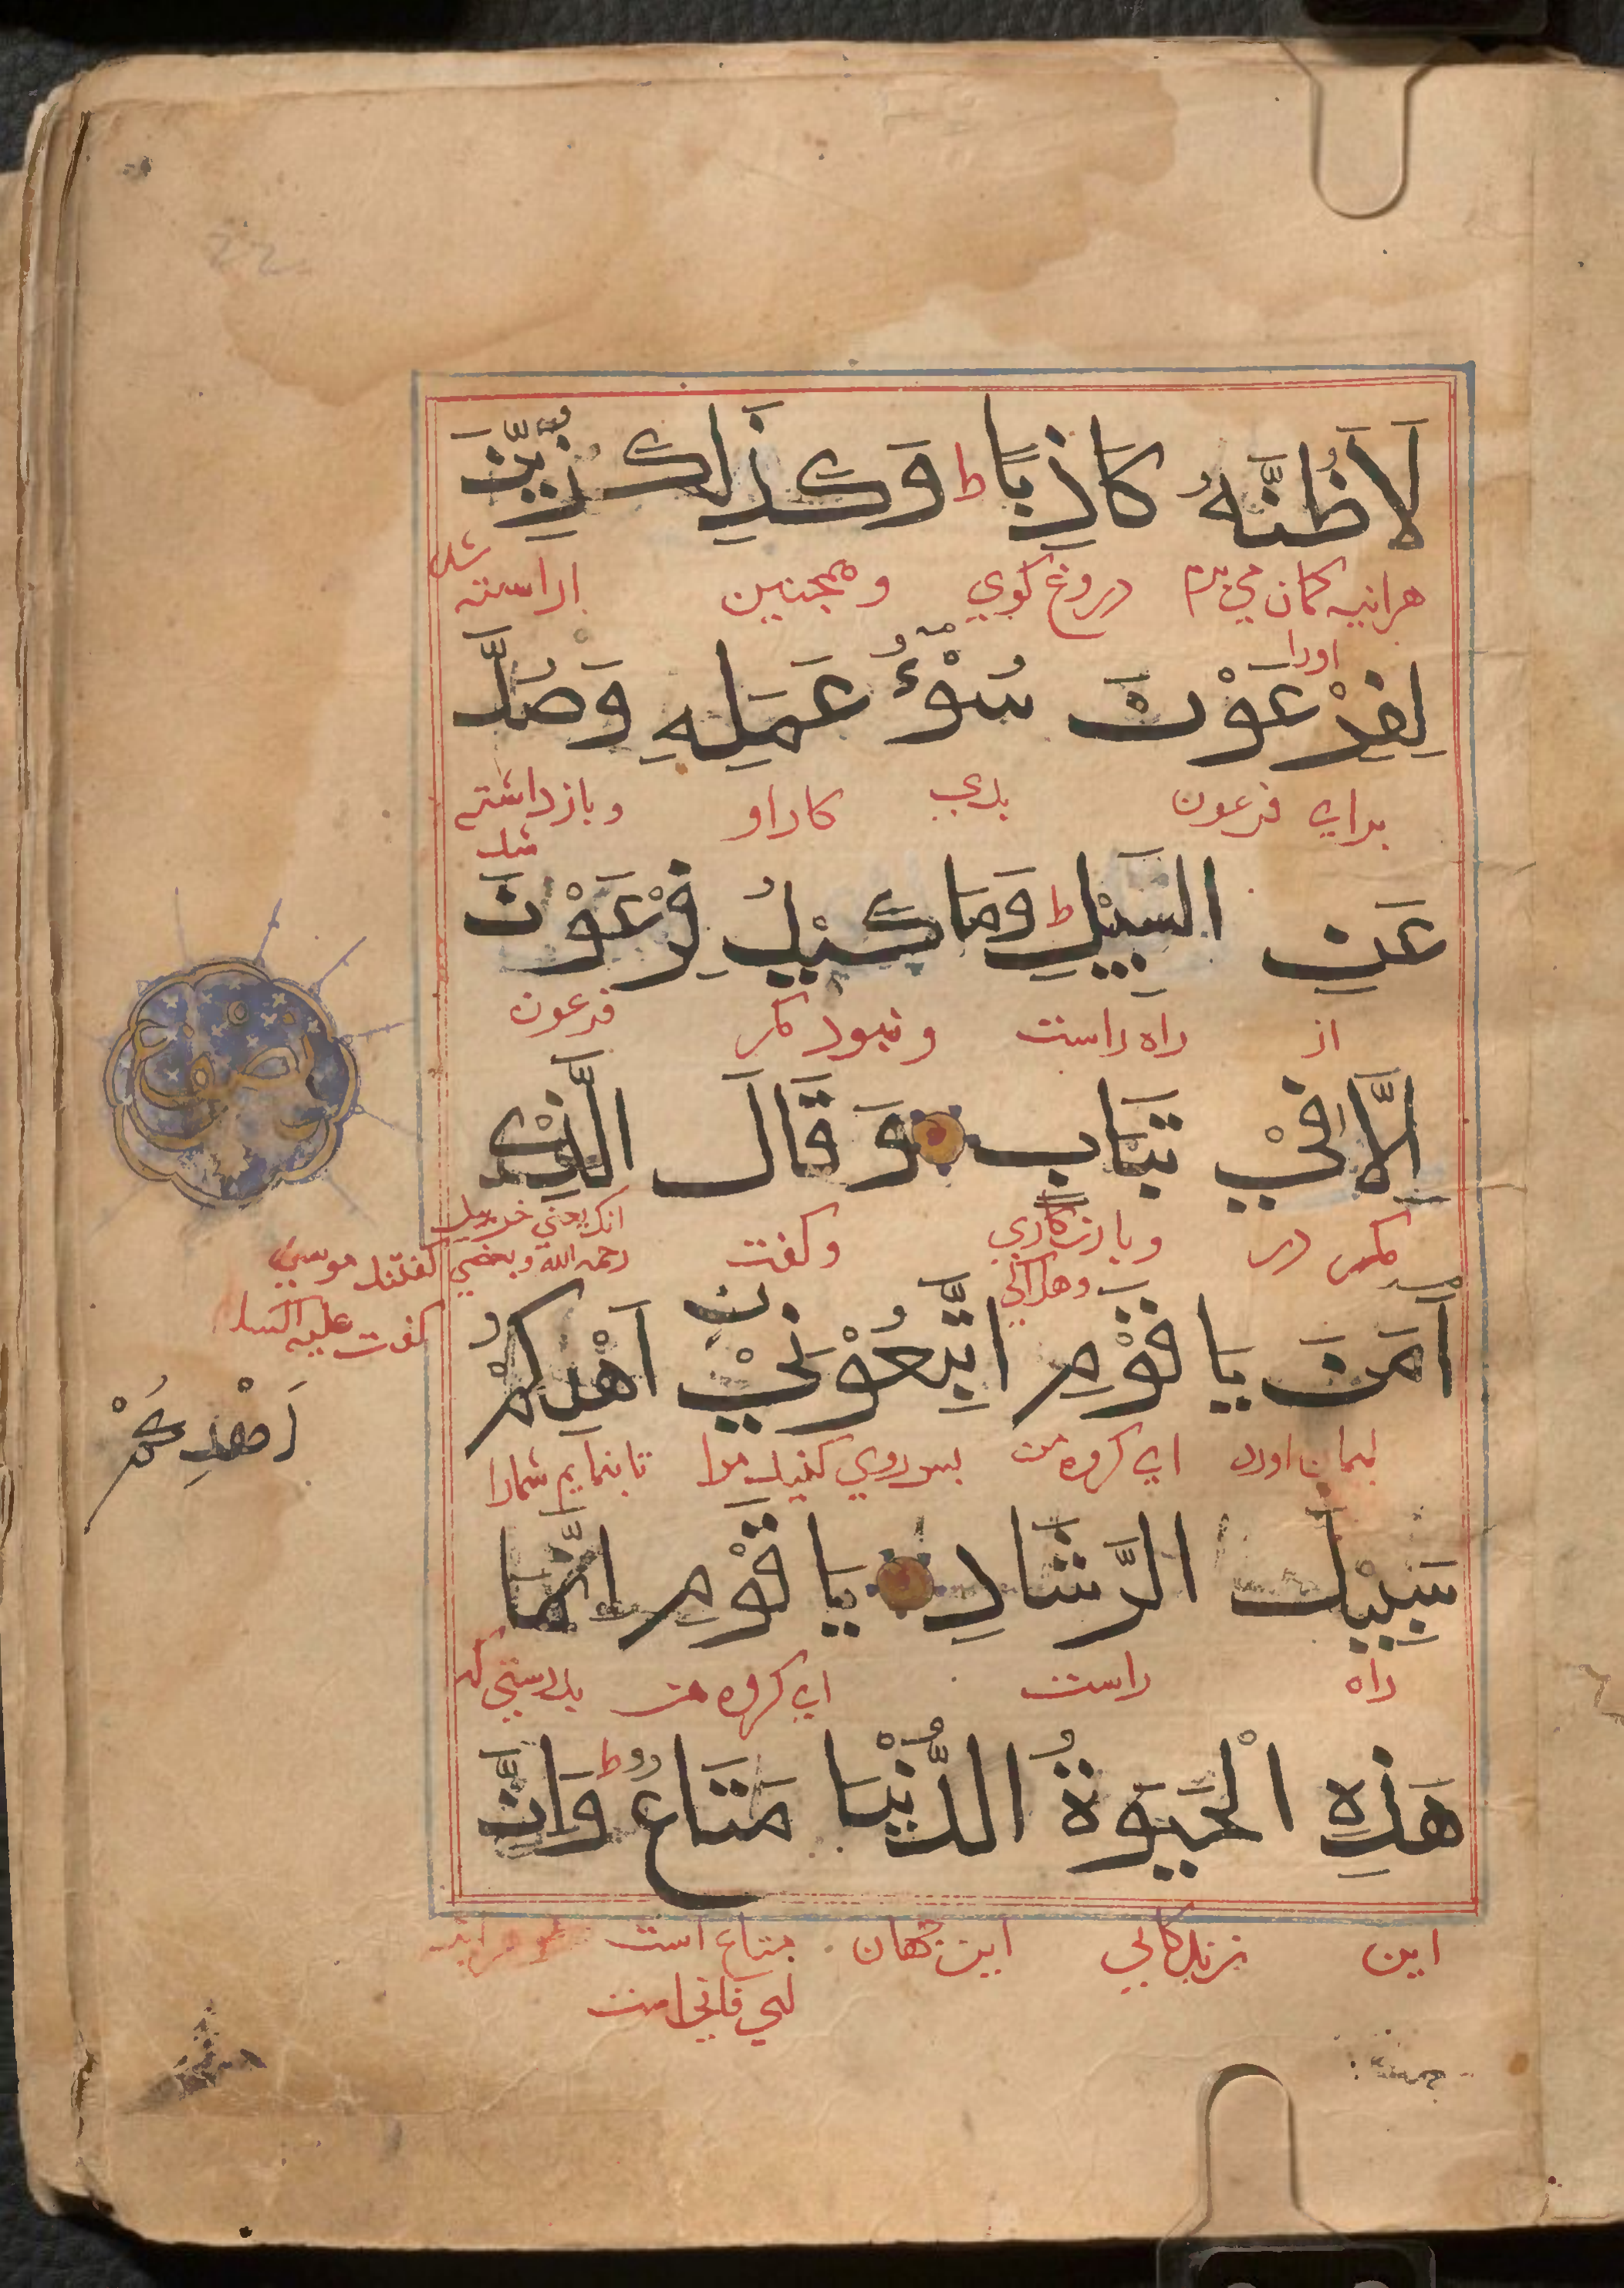 لَاَظُنُّهُ كَاذِبًا ط وَكَذٰلِكَ زُيِّنَ
هرانیه کمان می برم دروغ کوي و همجنین اراسته شد
اورا
لِفِرْعَوْنَ سُوْٓءُ عَمَلِهِ وَصُدَّ
برای فرعون بدی کار او و باز داشته شد
عَنِ السَّبِيْلِ ط وَمَا كَيْدُ فِرْعَوْنَ
از راه راست و نبود مکر فرعون
اِلَّا فِيْ تَبَابٍ وَقَالَ الَّذِيْ
مکر در و زیان کاري وهلاکي وکفت انک یعنی خربیل
رحمه الله وبعضي کفتند موسی
کفت علیه السلا
نصف
اٰمَنَ يَا قَوْمِ اتَّبِعُوْنِيْ اَهْدِكُمْ
ایمان اورد ای کروه من بس روي کنید مرا تا بنمایم شمارا
اَهْدِكُمْ
سَبِيْلَ الرَّشَادِ يَا قَوْمِ اِنَّمَا
راه راست ای کروه من بدرستی که
هٰذِهِ الْحَيٰوةُ الدُّنْيَا مَتَاعٌ ط وَاِنَّ
این زندکانی این جهان متاع است
فانی است